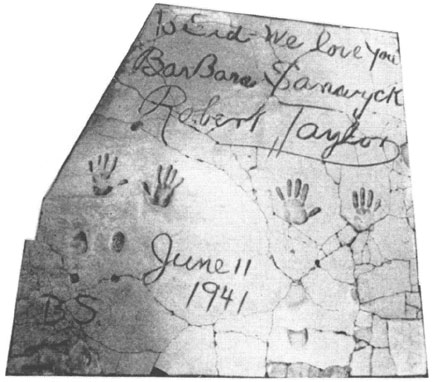 To Sid - We love you
BarBara Stanwyck
Robert Taylor
June 11
1941
B.S.